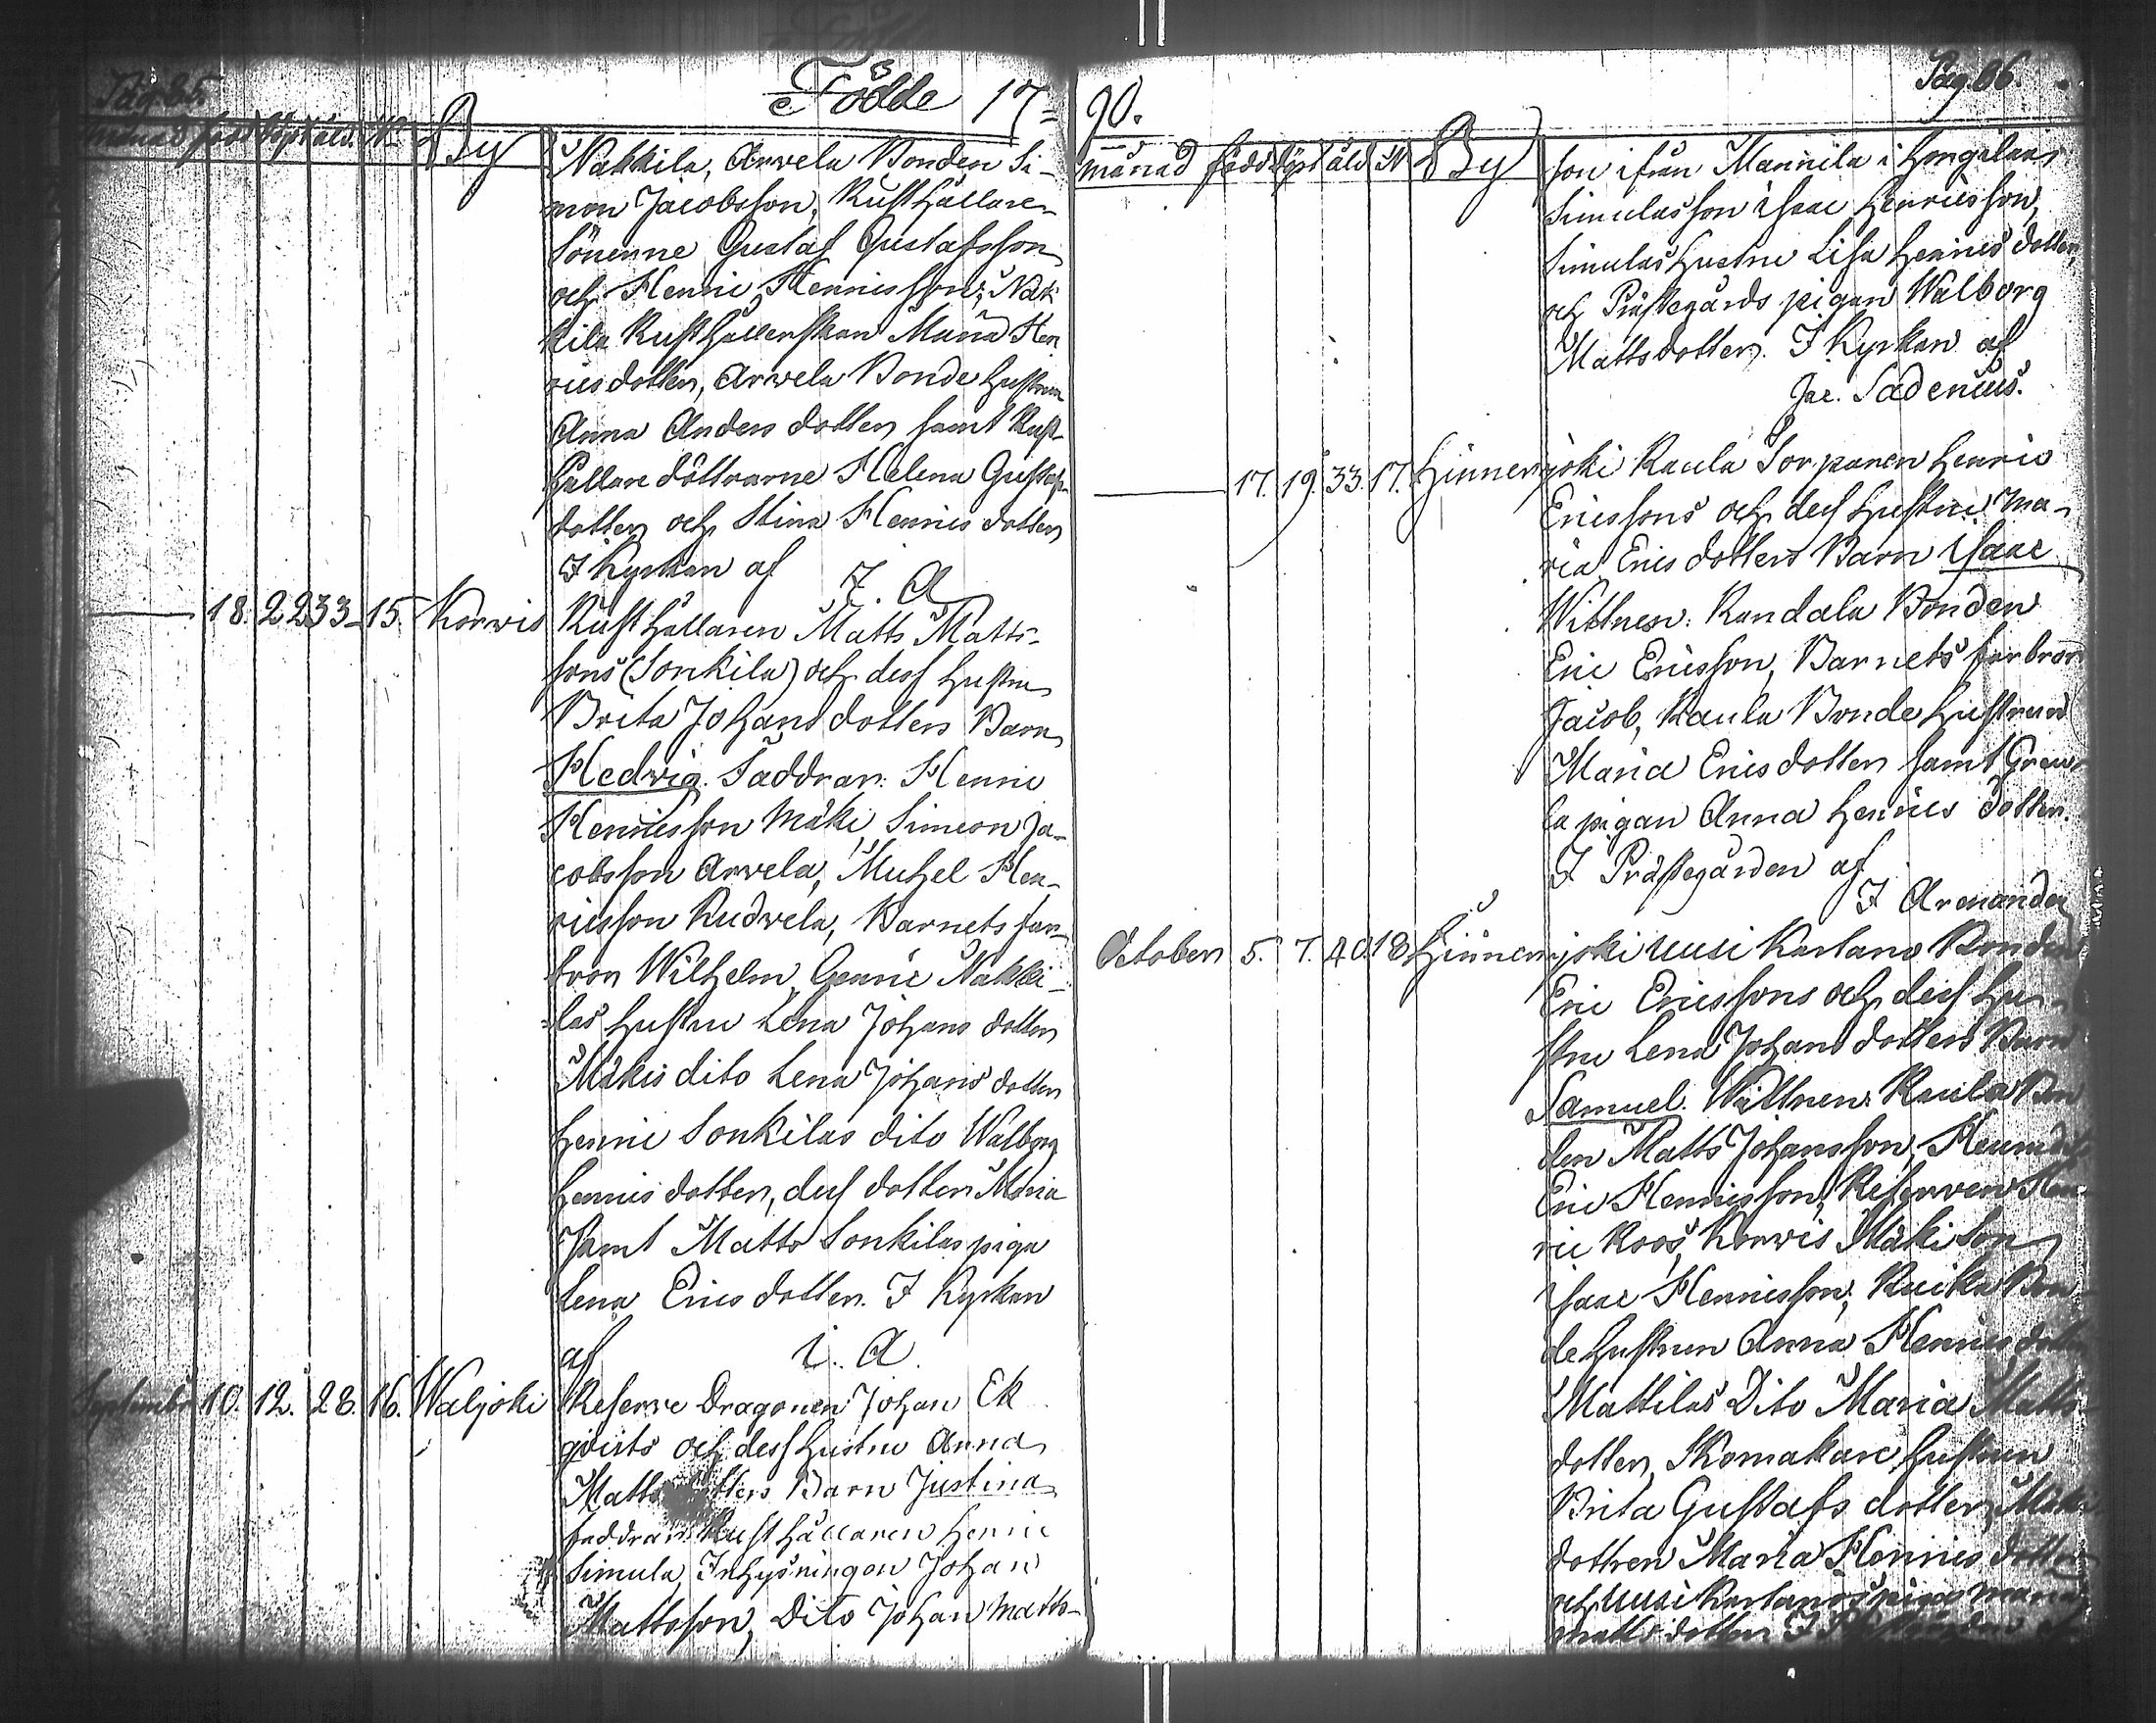 Pag. 65.
Födde 17-
Månad född döpt åld. N. By
Nakkila, Arvela Bonden Si-
mon Jacobsson, Rusthållare-
Sönerne Gustaf Gustafsson
och Henric Henricsson, Nak
kila Rusthållerskan Maria Hen
rics dotter, Arvela Bonde hustrun
Anna Anders dotter samt Rust-
hållare döttrarne Helena Gustafs
dotter och Stina Henrics dotter
I Kyrkan af I. A
18. 22 33 15. Korwis Rusthållaren Matts Matts-
sons (Sonkila) och dess hustru
Brita Johans dotters Barn
Hedwig. Faddrar: Henric
Henricsson Mäki, Simeon Ja-
cobsson Arwela, Michel Hen-
ricsson Rudwela, Barnets far-
bror Wilhelm, Henric Nakki-
las hustru Lena Johans dotter
Mäkis dito Lena Johans dotter
Henric Sonkilas dito Walborg
Henrics dotter, dess dotter Maria
samt Matts Sonkilas piga
Lena Erics dotter. I Kyrkan
af I. A.
September 10. 12. 28. 16. Waljoki Reserve Dragonen Johan Ek
qvists och dess hustru Anna
Matts dotters Barn Justina
faddrar Rusthållaren Henric
Simula, Inhysningen Johan
Mattsson, Dito Johan Matts-
90.
Pag. 66.
månad född döpt åld N By
son ifrån Mannila i Hongilax
Simulas son Isaac Henricsson,
Simulas hustru Lisa Henrics dotter,
och Prästegårds pigan Walborg
Mattsdotter. I Kyrkan af
Jac. Sadenius.
17. 19. 33. 17. Hinnerjoki Raula Torparen Henric
Ericssons och dess hustru Ma-
ria Erics dotters Barn Isaac
Wittnen: Randala Bonden
Eric Ericsson, Barnets farbror
Jacob, Raula Bonde hustrun
Maria Erics dotter samt
la pigan Anna Henrics dotter.
I Prästegården af
I Armander
October 5. 7. 40. 18 Hinnerjoki Uusi Kartano Bonden
Eric Ericssons och dess hu-
stru Lena Johans dotters Barn
Samuel. Wittnen: Raula Bon
den Matts Johansson,
Eric Henricsson, Reserven Hen-
ric Roos, Korwis Mäki Son
Isaac Henricsson, Ruika Bon-
de hustrun Anna Henrics dotter
Mattilas Dito Maria Matts-
dotter, Skomakare hustrun
Brita Gustafs dotter, Mäki
dottren Maria Henrics dotter
och Uusi Kartanos piga Maria
Matts dotter I